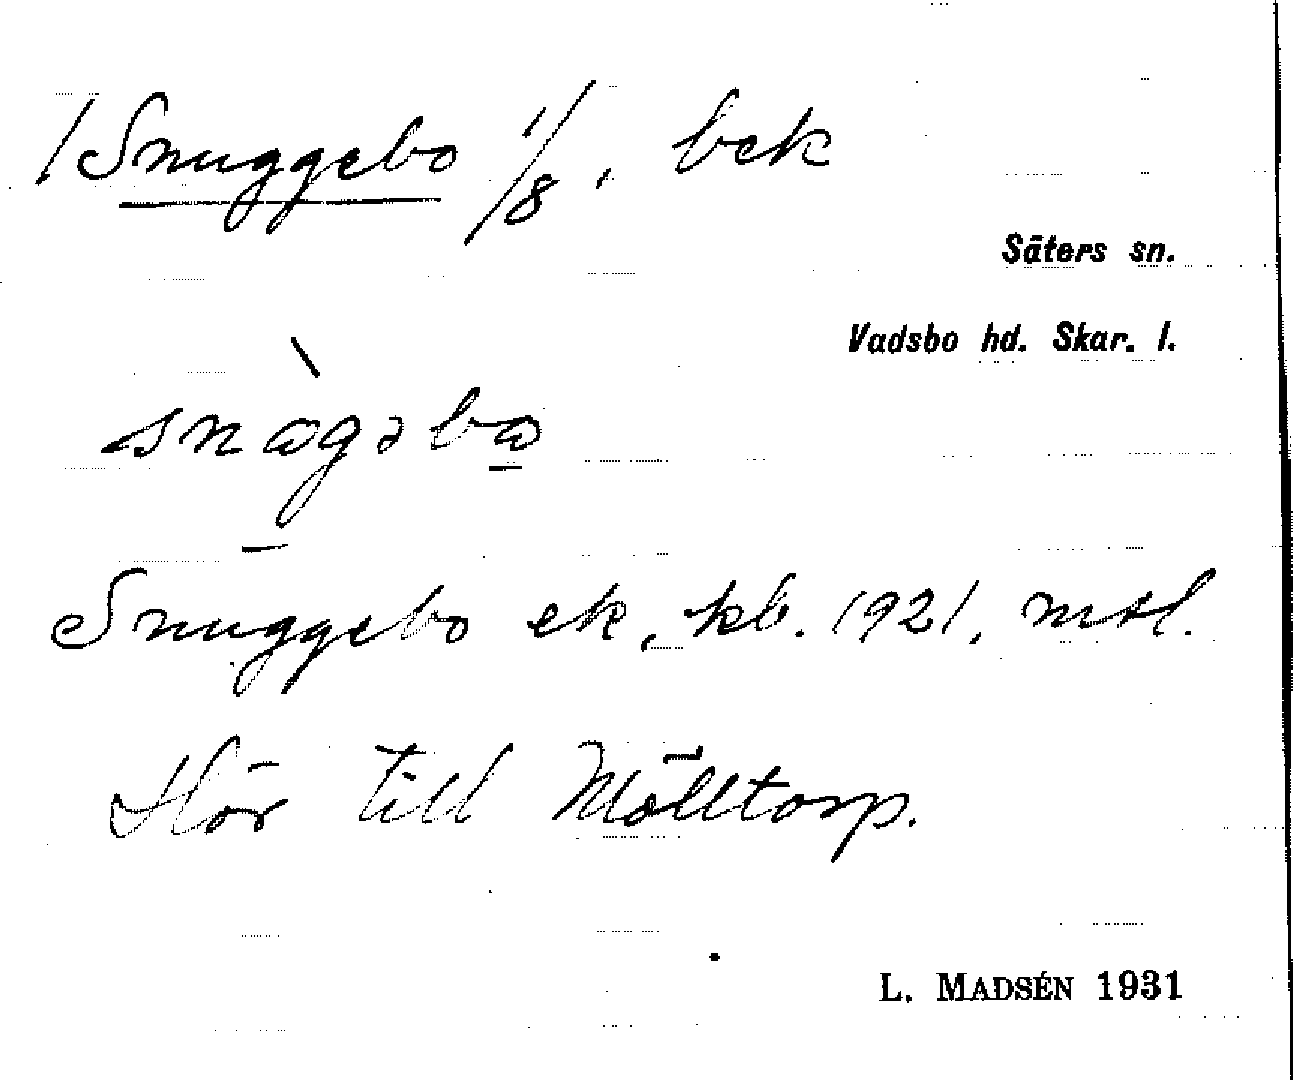 /Snuggebo 1/8, bek
Säters sn.
Vadsbo hd. Skar. l.
snògəbo
Snuggebo ek, kb. 1921, mtl.
Hör till Mölltorp.
L. MADSÉN 1931